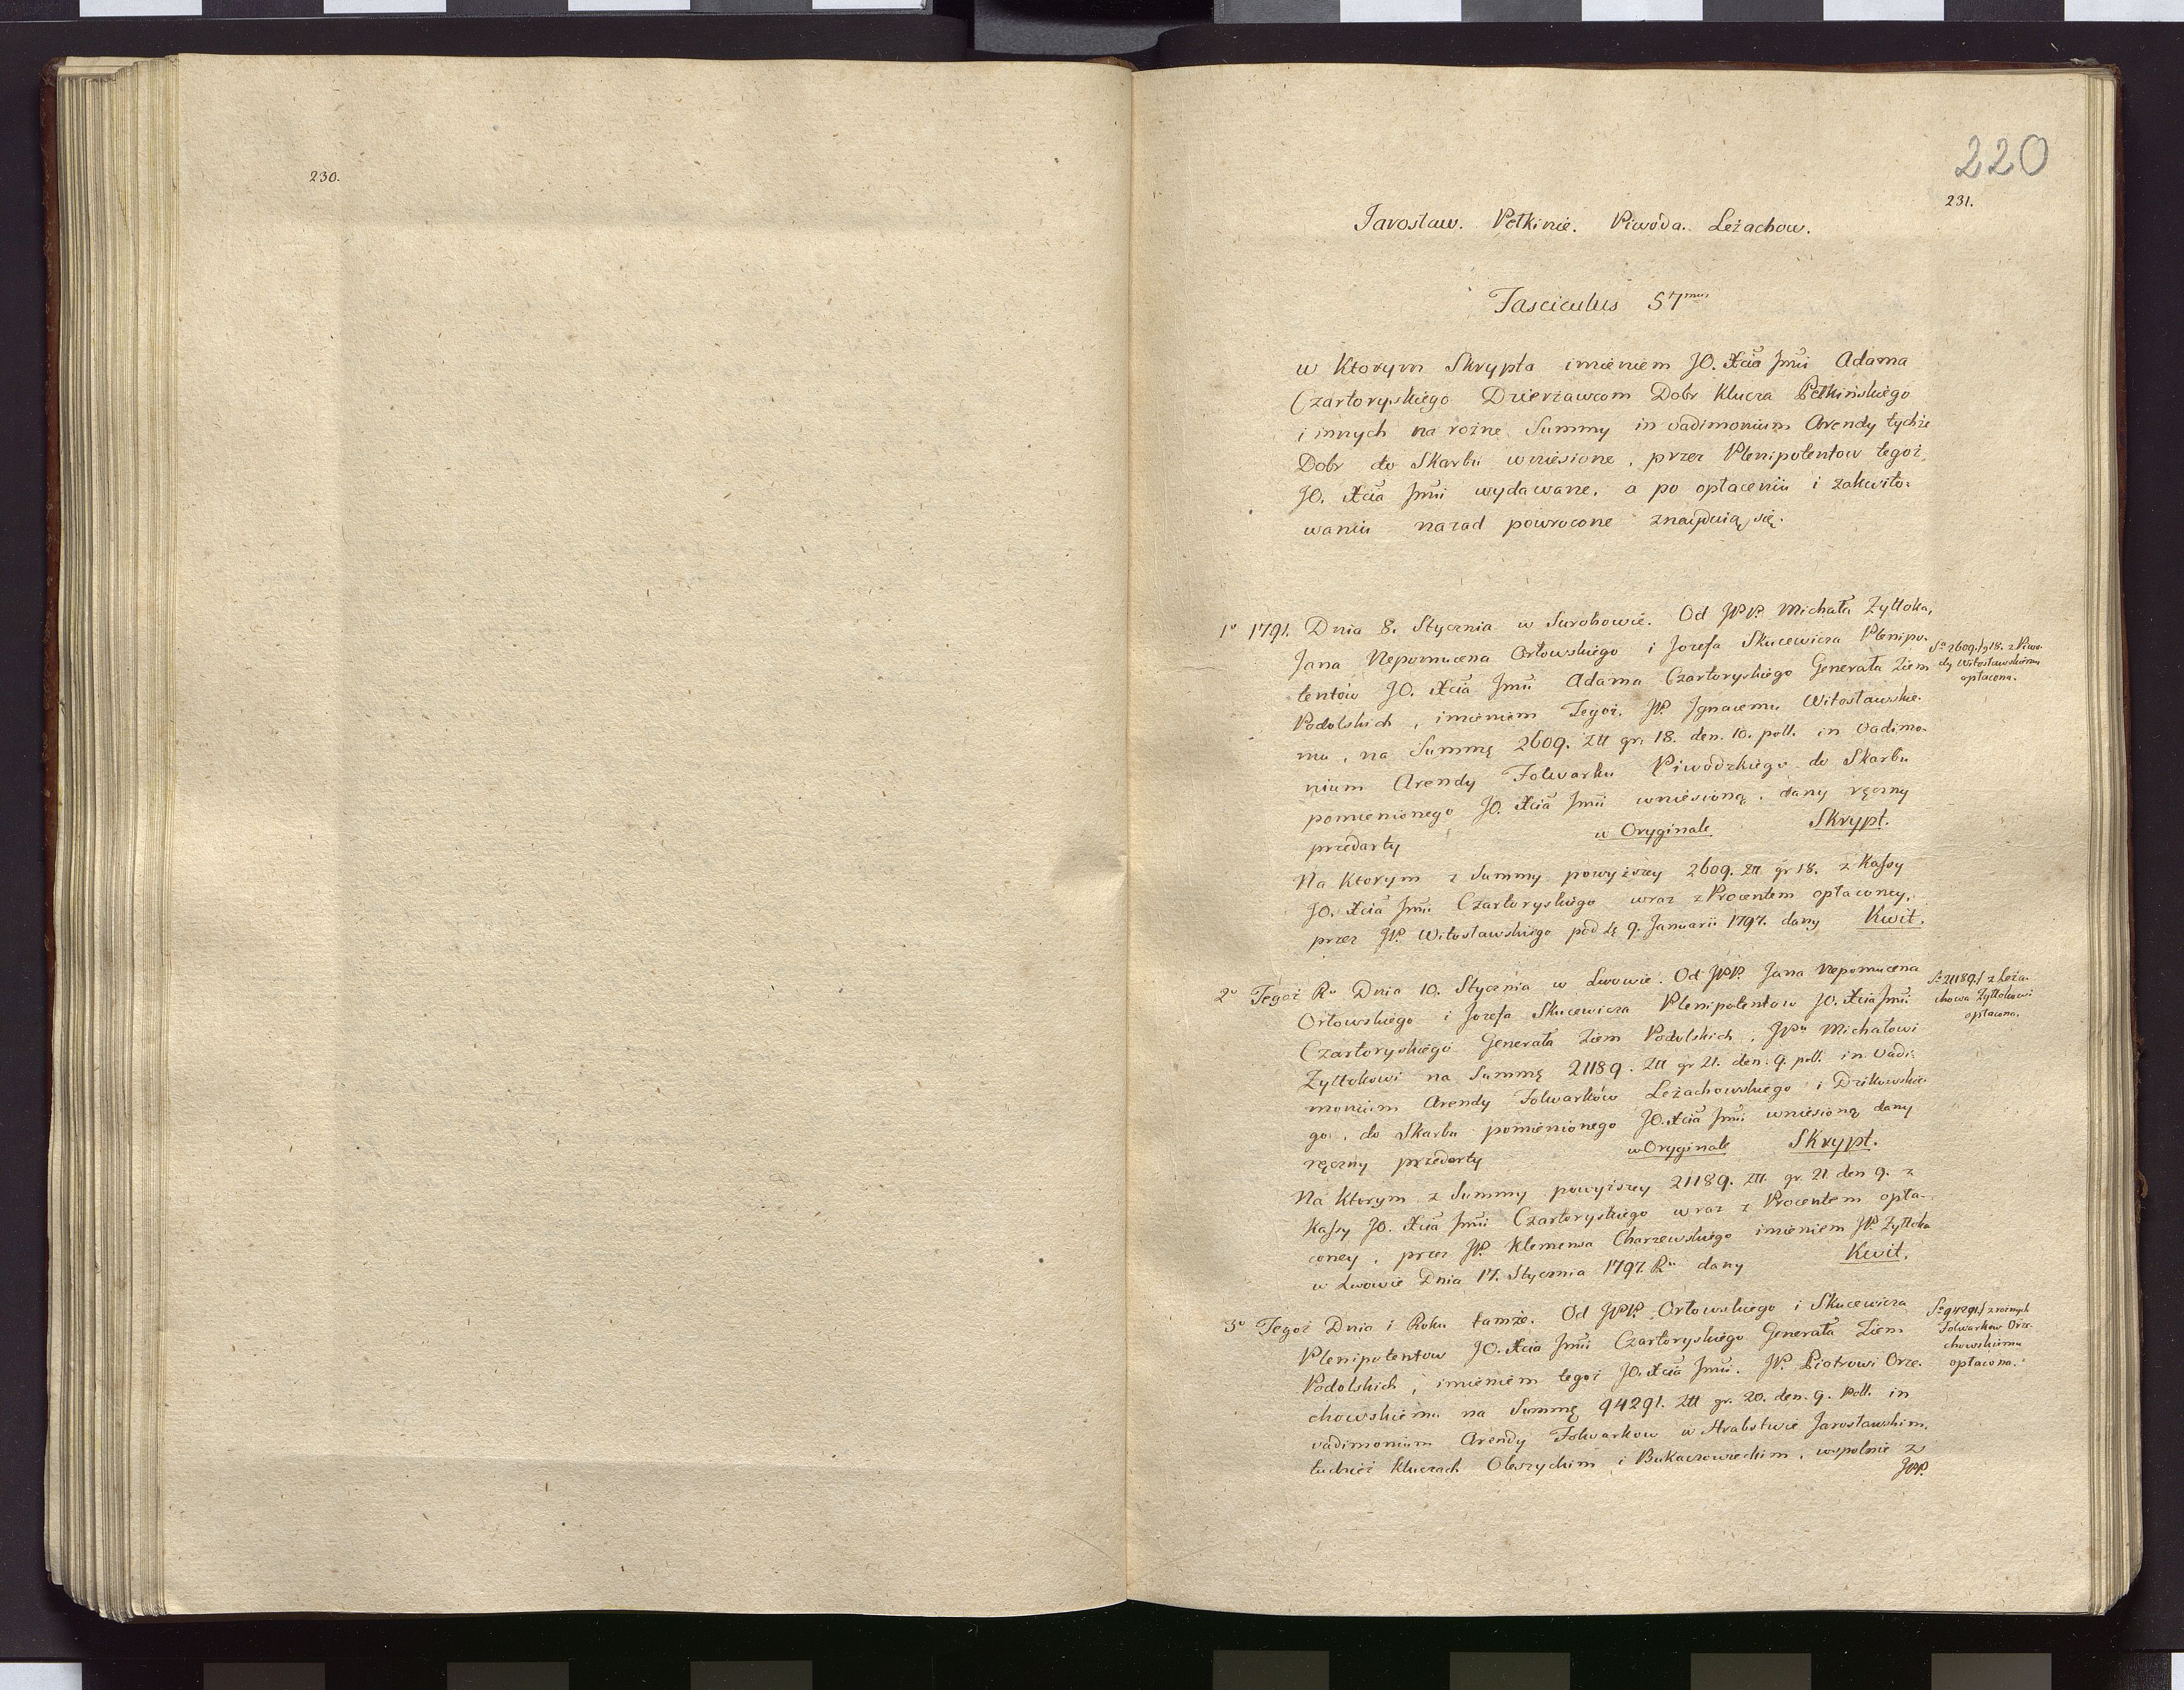 230.
220
231.
Jarosław. Pełkinie. Piwoda. Leżachow.
Fasciculus 57mus
w Ktorym Skrypta imieniem JO. Xcia Jmci Adama
Czartoryskiego Dzierżawcom Dobr Klucza Pełkińskiego
i innych na rożne Summy in vadimonium Arendy tychże
Dobr do Skarbu wniesione, przez Plenipotentow tegoż
JO. Xcia Jmci wydawane, a po opłaceniu i zakwito-
waniu nazad powrocone znayduią się.
1o 1791. Dnia 8. Stycznia w Surohowie. Od JPP. Michała Zyttoka,
Jana Nepomucena Orłowskiego i Jozefa Skucewicza Plenipo-
tentów JO. Xcia Jmci Adama Czartoryskiego Generała Ziem
Podolskich, imieniem Tegoż, JP. Jgnacemu Witosławskie-
mu, na Summę 2609. Ztt gr. 18. den. 10. poll. in Vadimo-
nium Arendy Folwarku Piwodzkiego do Skarbu
pomienionego JO. Xcia Jmci wniesioną, dany ręczny
przedarty w Oryginale Skrypt.
Sa 2609./g18. z Piwo-
dy Witosławskiemu
opłacona.
Na Ktorym z Summy powyższey 2609. Ztt gr 18. z Kassy
JO. Xcia Jmci Czartoryskiego wraz z Procentem opłaconey,
przez JP. Witosławskiego pod dę 9. Januarii 1797. dany Kwit.
2o Tegoż Ru Dnia 10. Stycznia w Lwowie. Od JPP. Jana Nepomucena
Orłowskiego i Jozefa Skucewicza Plenipotentow JO. Xcia Jmci
Czartoryskiego Generała Ziem Podolskich, JPu Michałowi
Zyttokowi na Summę 21189. Ztt gr 21. den. 9. poll. in Vadi-
monium Arendy Folwarków Leżachowskiego i Dzikowskie-
go, do Skarbu pomienionego JO. Xcia Jmci wniesioną dany
ręczny przedarty w Oryginale Skrypt.
Sa 21189./ z Leża-
chowa Zyttokowi
opłacona.
Na Ktorym z Summy powyższey 21189. Ztt. gr. 21 den 9. z
Kassy JO. Xcia Jmci Czartoryskiego wraz z Procentem opła-
coney, przez JP. Klemensa Charzewskiego imieniem JP. Zyttoka
w Lwowie Dnia 17. Stycznia 1797. Ru dany Kwit.
3o Tegoż Dnia i Roku tamże. Od JPP. Orłowskiego i Skucewicza
Plenipotentow JO. Xcia Jmci Czartoryskiego Generała Ziem
Podolskich, imieniem tegoż JO. Xcia Jmci. JP. Piotrowi Orze-
chowskiemu na Summę 94291. Ztt gr. 20. den. 9. Poll. in
vadimonium Arendy Folwarkow w Hrabstwie Jarosławskim,
tudzież Kluczach Oleszyckim i Bukaczowieckim, wspolnie z
JPP.
Sa 94291./ z rożnych
Folwarkow Orze-
chowskiemu
opłacona.